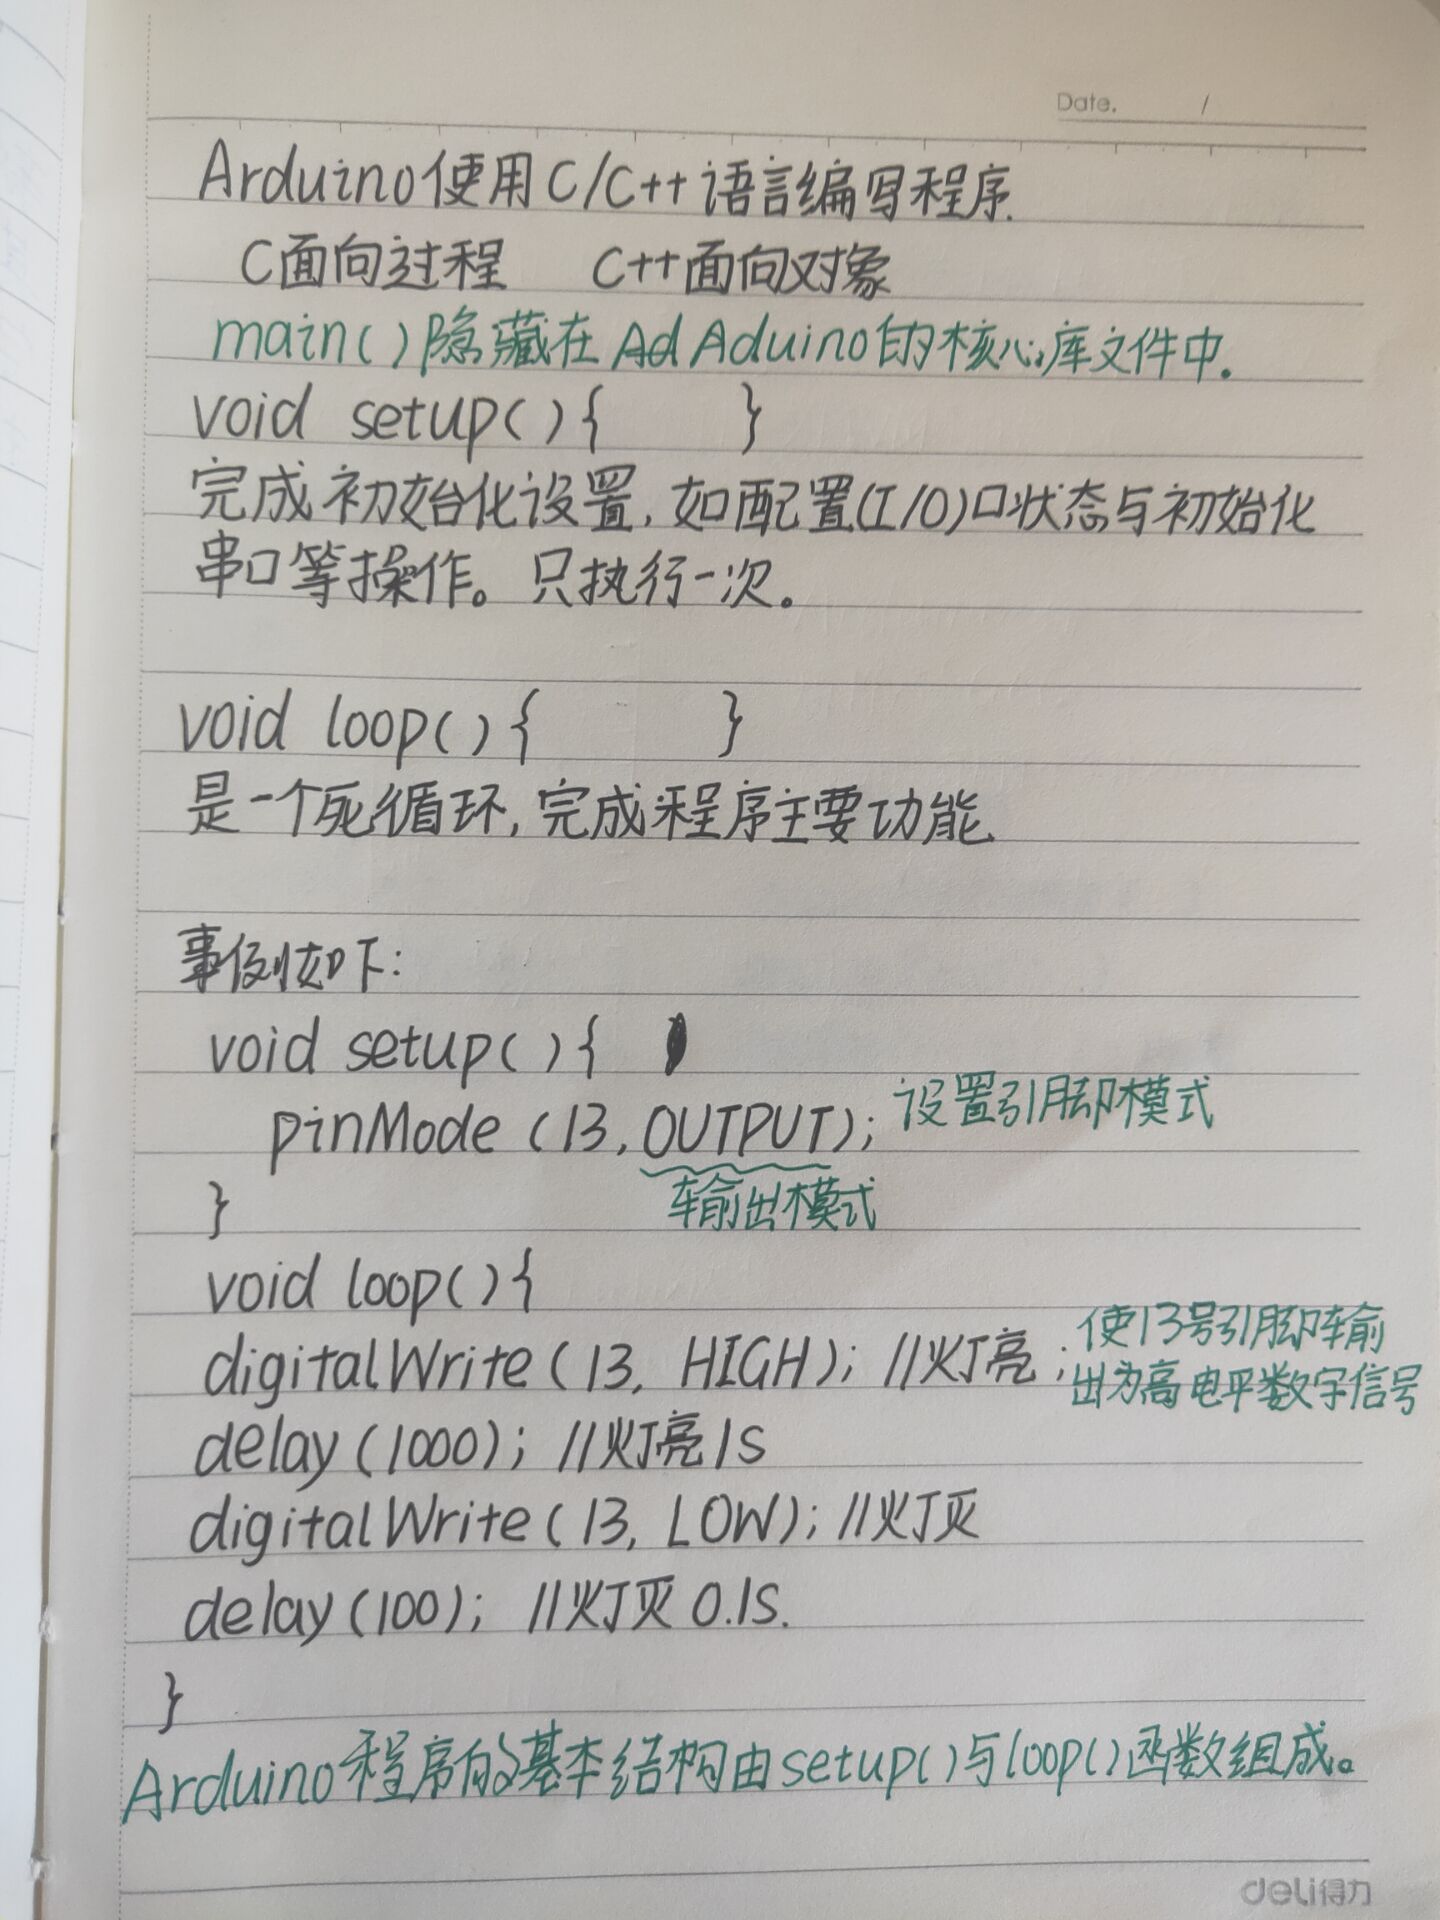 Date. /
Arduino使用C/C++语言编写程序.
C面向过程 C++面向对象
main()隐藏在Aduino的核心库文件中.
void setup(){ }
完成初始化设置,如配置(I/O)口状态与初始化
串口等操作。只执行一次。
void loop(){ }
是一个死循环,完成程序主要功能.
事例如下:
void setup(){
pinMode (13,OUTPUT); 设置引脚模式
输出模式
}
void loop(){
digitalWrite(13, HIGH); //灯亮; 使13号引脚输
出为高电平数字信号
delay(1000); //灯亮1S
digitalWrite(13, LOW); //灯灭
delay(100); //灯灭0.1S.
}
Arduino程序的基本结构由setup()与loop()函数组成。
deli得力